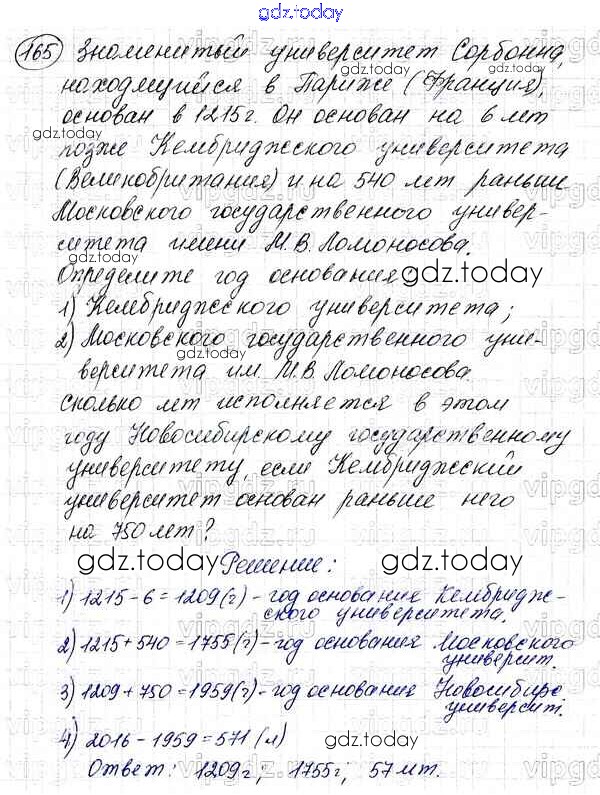 gdz.today
165 Знаменитый университет Сорбонна,
находящийся в Париже (Франция),
gdz.today
основан в 1215г. Он основан на 6 лет
gdz.today
позже Кембриджского университета
(Великобритания) и на 540 лет раньше
gdz.today
Московского государственного универ-
ситета имени М.В. Ломоносова.
Определите год основания
gdz.today
1) Кембриджского университета;
2) Московского государственного уни-
gdz.today
верситета им. М.В. Ломоносова.
сколько лет исполняется в этом
году Новосибирскому государственному
университету, если Кембриджский
университет основан раньше него
на 750 лет?
gdz.today gdz.today
Решение:
1) 1215-6=1209(г)-год основания Кембридж-
ского университета.
2) 1215+540=1755(г)-год основания Московского
университ.
3) 1209+750=1959(г)-год основания Новосибирс.
университ.
4) 2016-1959=571 (л)
gdz.today
Ответ: 1209г; 1755г; 57 лет.